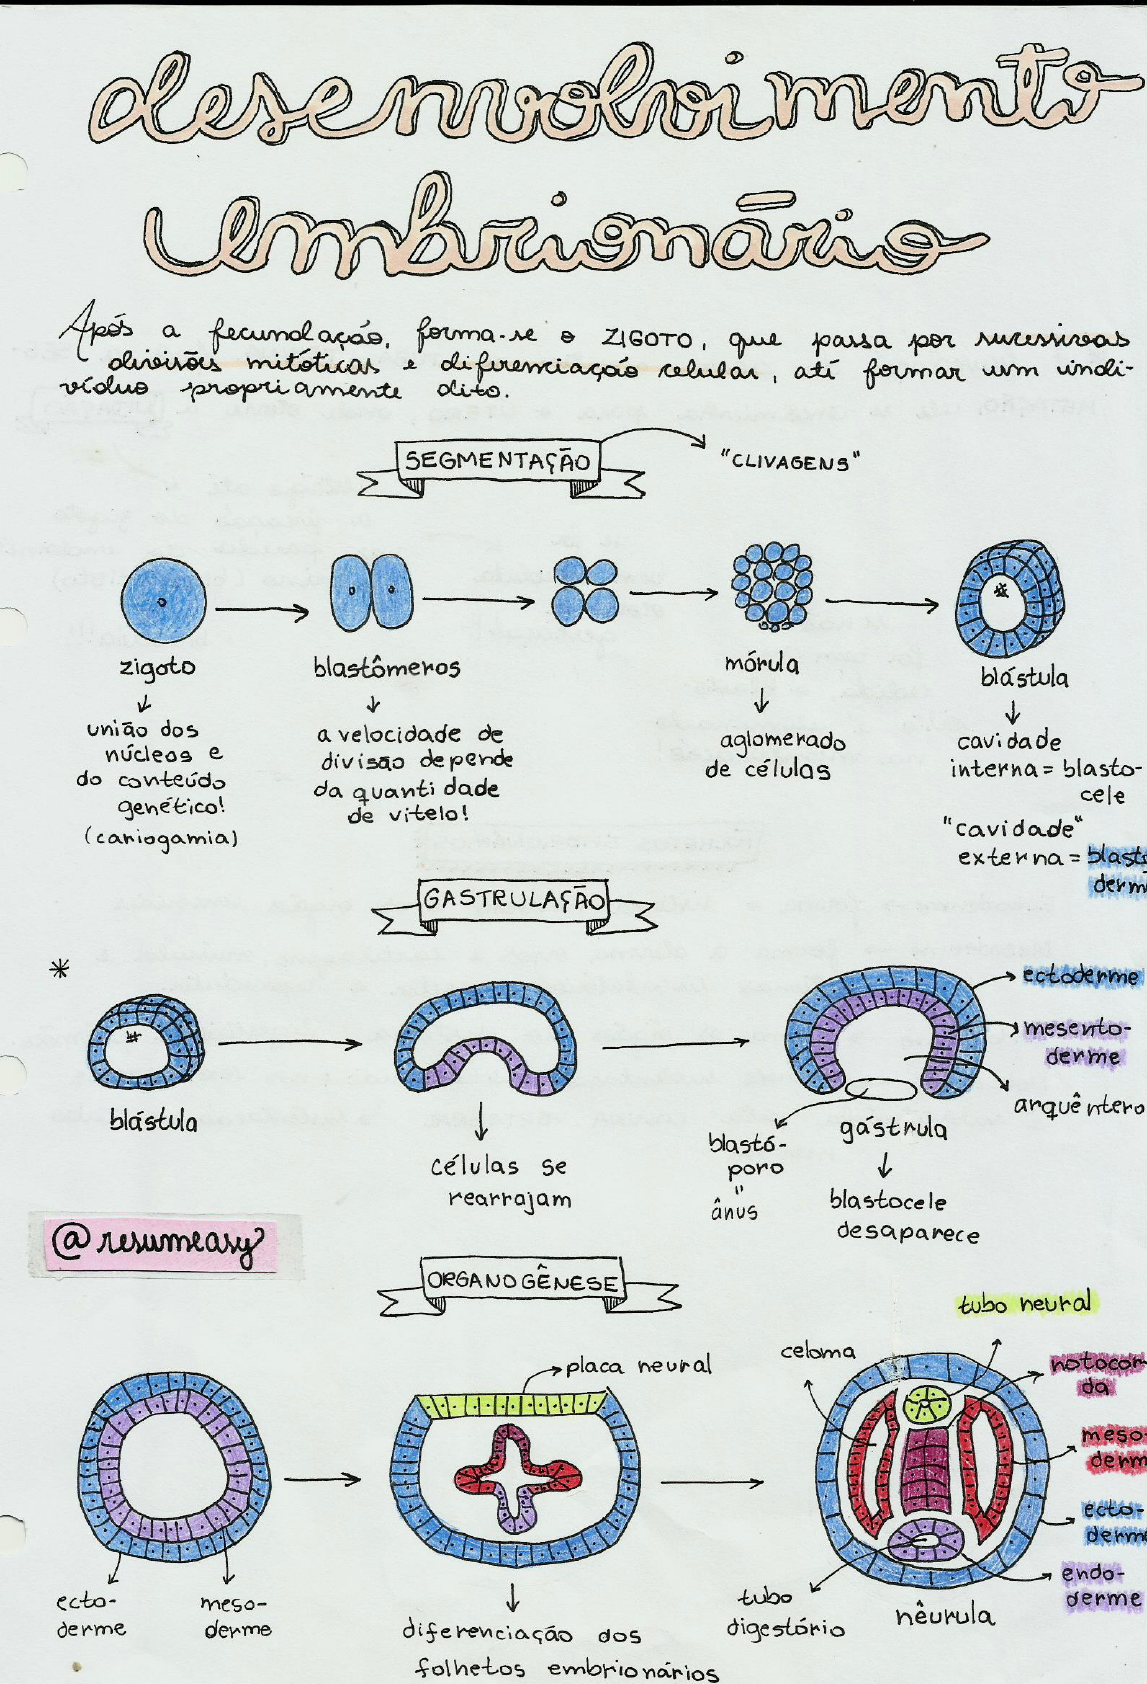 desenvolvimento
Embrionário
Após a fecundação, forma-se o ZIGOTO, que passa por sucessivas
divisões mitóticas e diferenciação celular, até formar um indi-
víduo propriamente dito.
SEGMENTAÇÃO
"CLIVAGENS"
zigoto
união dos
núcleos e
do conteúdo
genético!
(cariogamia)
blastômeros
a velocidade de
divisão depende
da quantidade
de vitelo!
mórula
aglomerado
de células
blástula
cavidade
interna = blasto-
cele
"cavidade"
externa = blasto
derm
GASTRULAÇÃO
*
blástula
células se
rearrajam
ectoderme
mesento-
derme
arquêntero
blastó-
poro
"
ânus
gástrula
blastocele
desaparece
@resumeasy
ORGANOGÊNESE
ecto-
derme
meso-
derme
placa neural
diferenciação dos
folhetos embrionários
celoma
tubo neural
notocor-
da
meso-
derm
ecto-
derme
endo-
derme
tubo
digestório
nêurula